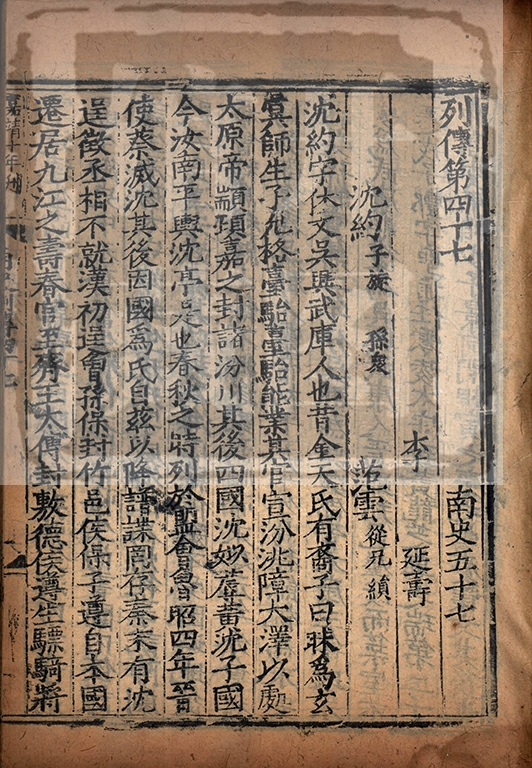 列傳第四十七 南史五十七
李 延壽
沈約 子旋 孫衆 范雲 從兄縝
沈約字休文吳興武康人也昔金天氏有裔子曰昧爲玄
冥師生子允格臺駘臺駘能業其官宣汾洮障大澤以處
太原帝顓頊嘉之封諸汾川其後四國沈姒蓐黃沈子國
今汝南平輿沈亭是也春秋之時列於盟會魯昭四年晉
使蔡滅沈其後因國爲氏自茲以降譜諜罔存秦末有沈
逞徵丞相不就漢初逞曾孫保封竹邑侯保子遵自本國
遷居九江之壽春官至齊王太傅封敷德侯遵生驃騎將
嘉靖十年刊